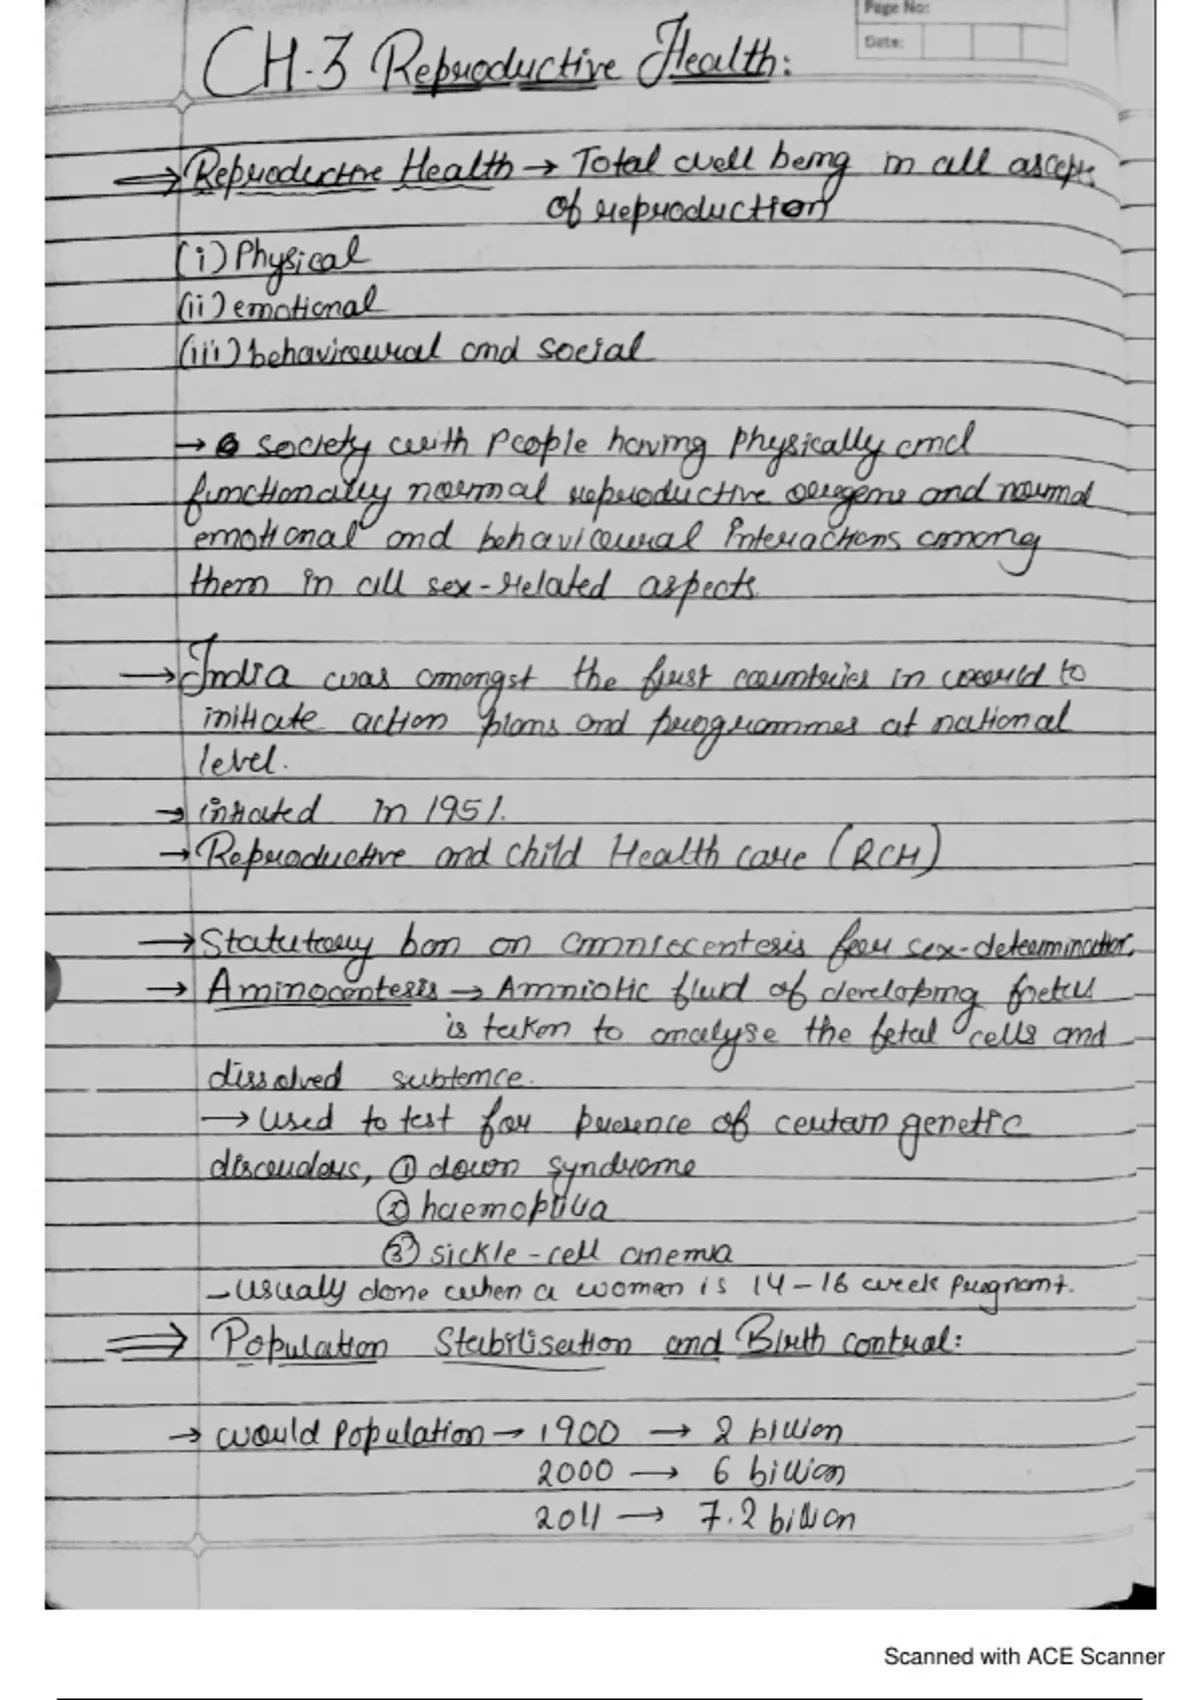 Page No:
Date:
CH.3 Reproductive Health:
⇒ Reproductive Health → Total well being in all ascepts
of reproduction
(i) Physical
(ii) emotional
(iii) behavioural and social
→ society with people having physically and
functionally normal reproductive oregens and normal
emotional and behavioural interactions among
them in all sex-related aspects.
→ India was amongst the first countries in world to
initiate action plans and programmes at national
level.
→ initated in 1951.
→ Reproductive and child Health care (RCH)
→ Statutory ban on amniocentesis for sex-determination.
→ Aminocentesis → Amniotic fluid of developing foetus
is taken to analyse the fetal cells and
dissolved subtence.
→ used to test for presence of certain genetic
disorders, ① down syndrome
② haemophilia
③ sickle-cell anemia
- usually done when a women is 14-16 week pregnant.
⇒ Population Stabilisation and Birth control:
→ world population → 1900 → 2 billion
2000 → 6 billion
2011 → 7.2 billion
Scanned with ACE Scanner